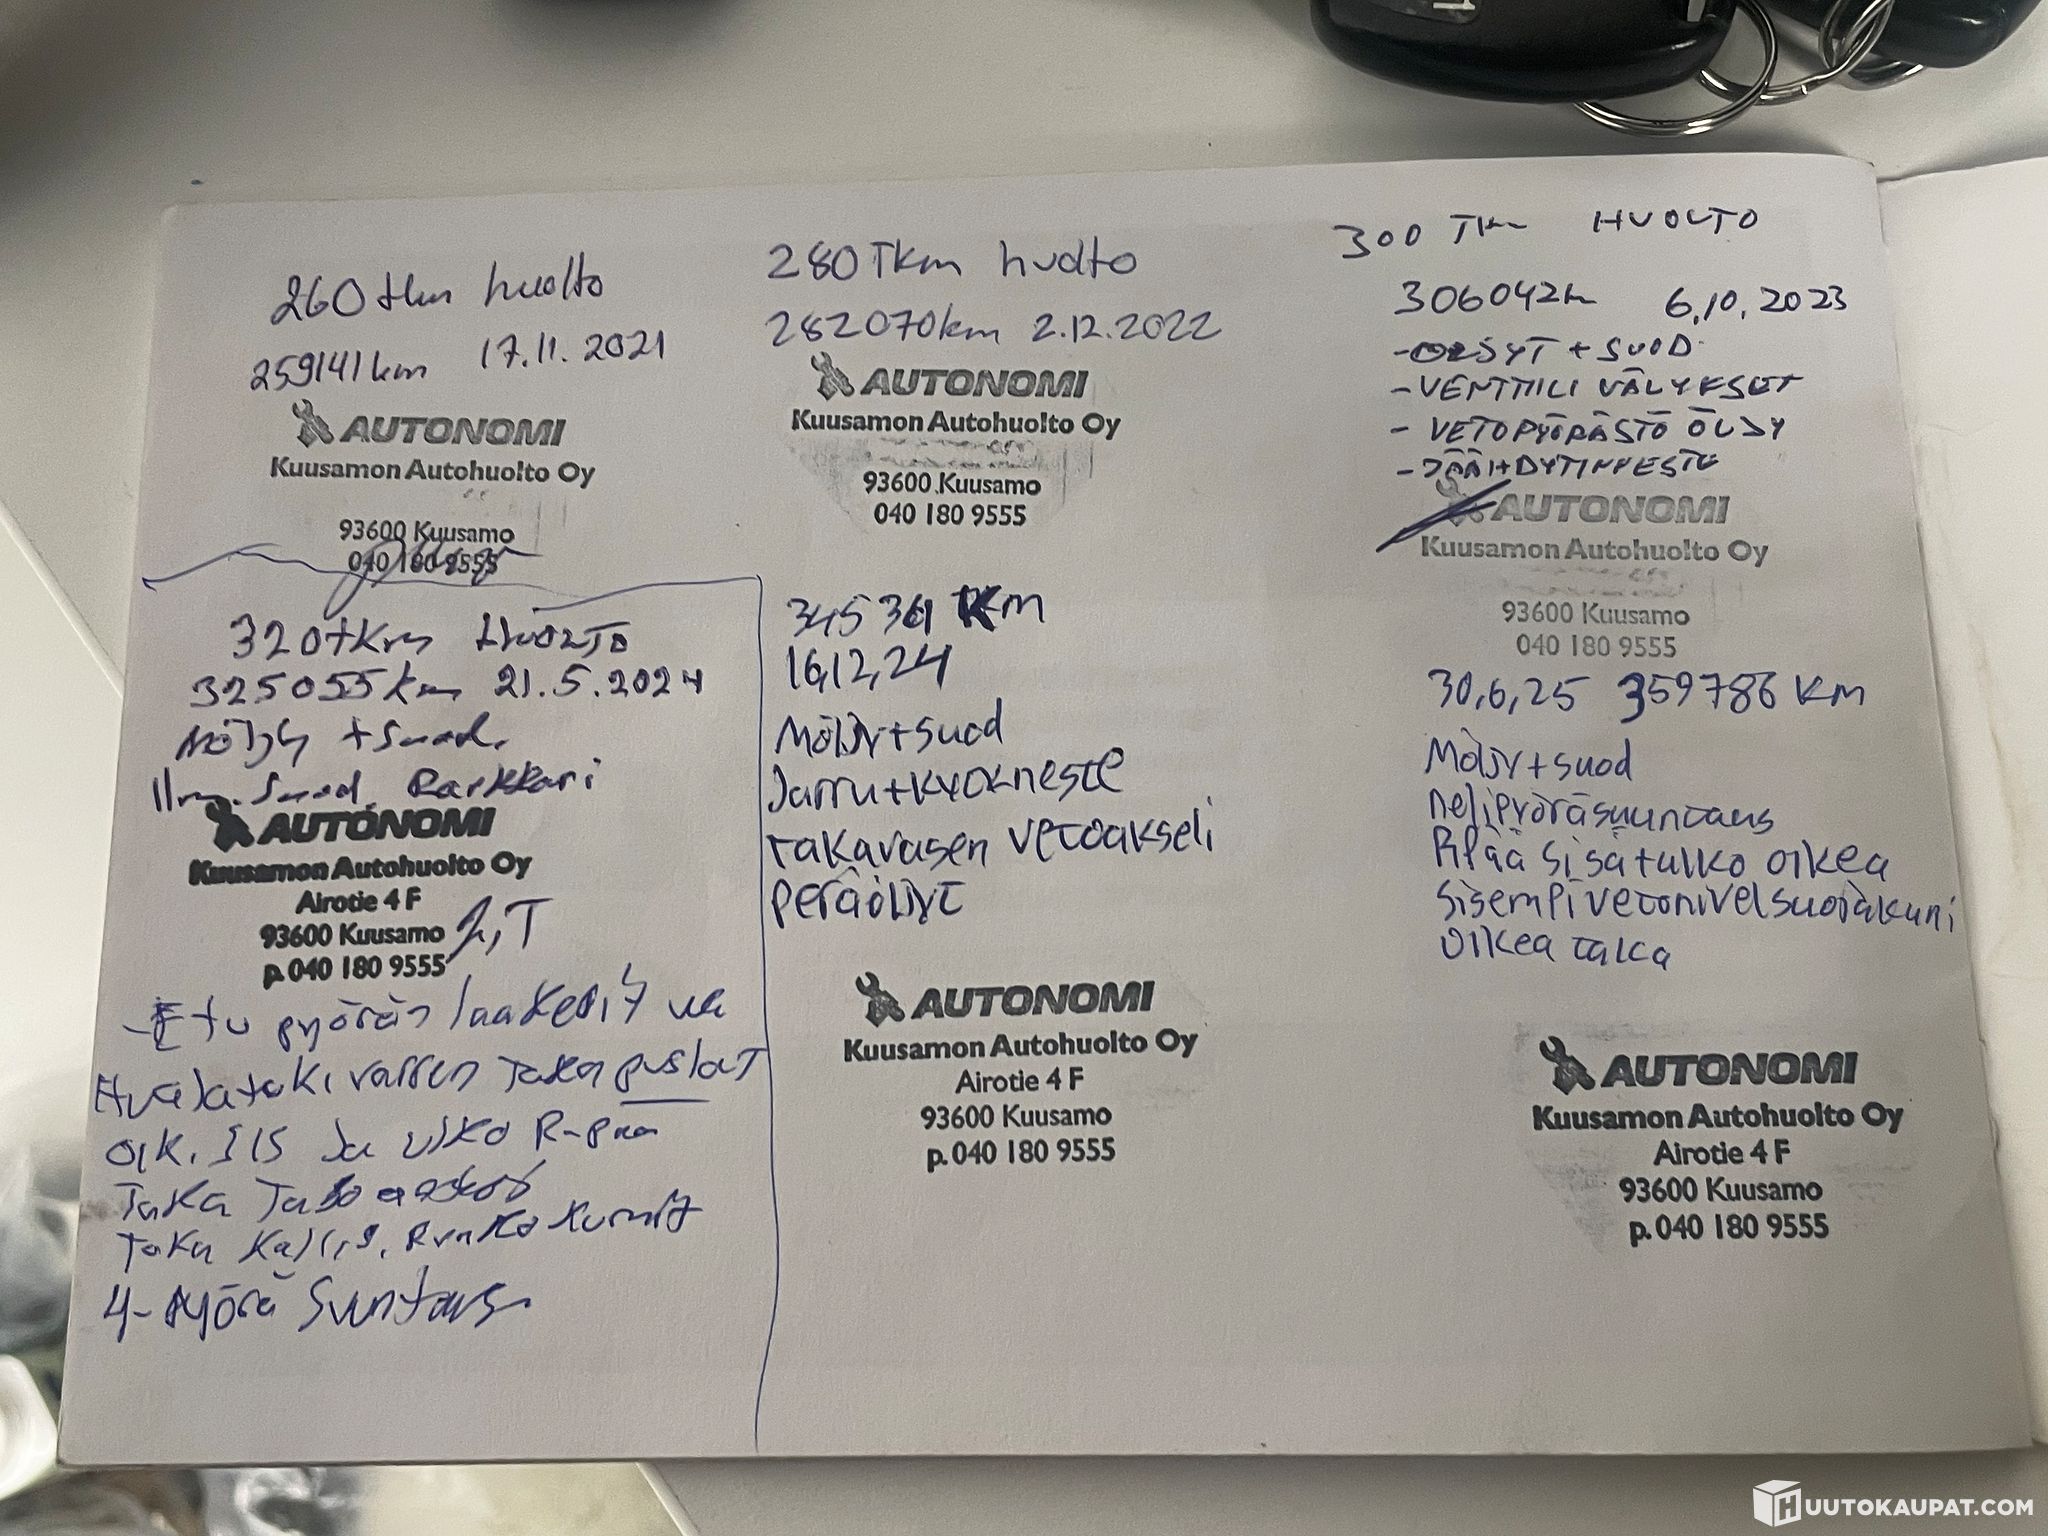 260 tkm huolto
259141 km 17.11.2021
AUTONOMI
Kuusamon Autohuolto Oy
93600 Kuusamo
040 180 9555
280 Tkm huolto
282070km 2.12.2022
AUTONOMI
Kuusamon Autohuolto Oy
93600 Kuusamo
040 180 9555
300 Tkm HUOLTO
306042km 6.10.2023
- ÖLJYT + SUOD.
- VENTTIILI VÄLYKSET
- VETOPYÖRÄSTÖ ÖLJY
- JÄÄHDYTINNESTE
AUTONOMI
Kuusamon Autohuolto Oy
93600 Kuusamo
040 180 9555
320tkm Huolto
325055km 21.5.2024
Möljy + Suod.
Ilm. Suod. Raikkari
AUTONOMI
Kuusamon Autohuolto Oy
Airotie 4 F
93600 Kuusamo
p. 040 180 9555
- Etu pyörän laakerit
Etualatukivarren taka puslat
oik. sis ja ulko R-pää
Taka
Taka runko kumit
4-pyörä Suuntaus
345361 KM
16,12,24
Möljy+suod
Jarru+kytkneste
takavasen vetoakseli
peräöljyt
AUTONOMI
Kuusamon Autohuolto Oy
Airotie 4 F
93600 Kuusamo
p. 040 180 9555
30,6,25 359786 KM
Möljy+suod
nelipyöräsuuntaus
Rpää sisä+ulko oikea
sisempi vetonivelsuojakumi
oikea taka
AUTONOMI
Kuusamon Autohuolto Oy
Airotie 4 F
93600 Kuusamo
p. 040 180 9555
HUUTOKAUPAT.COM